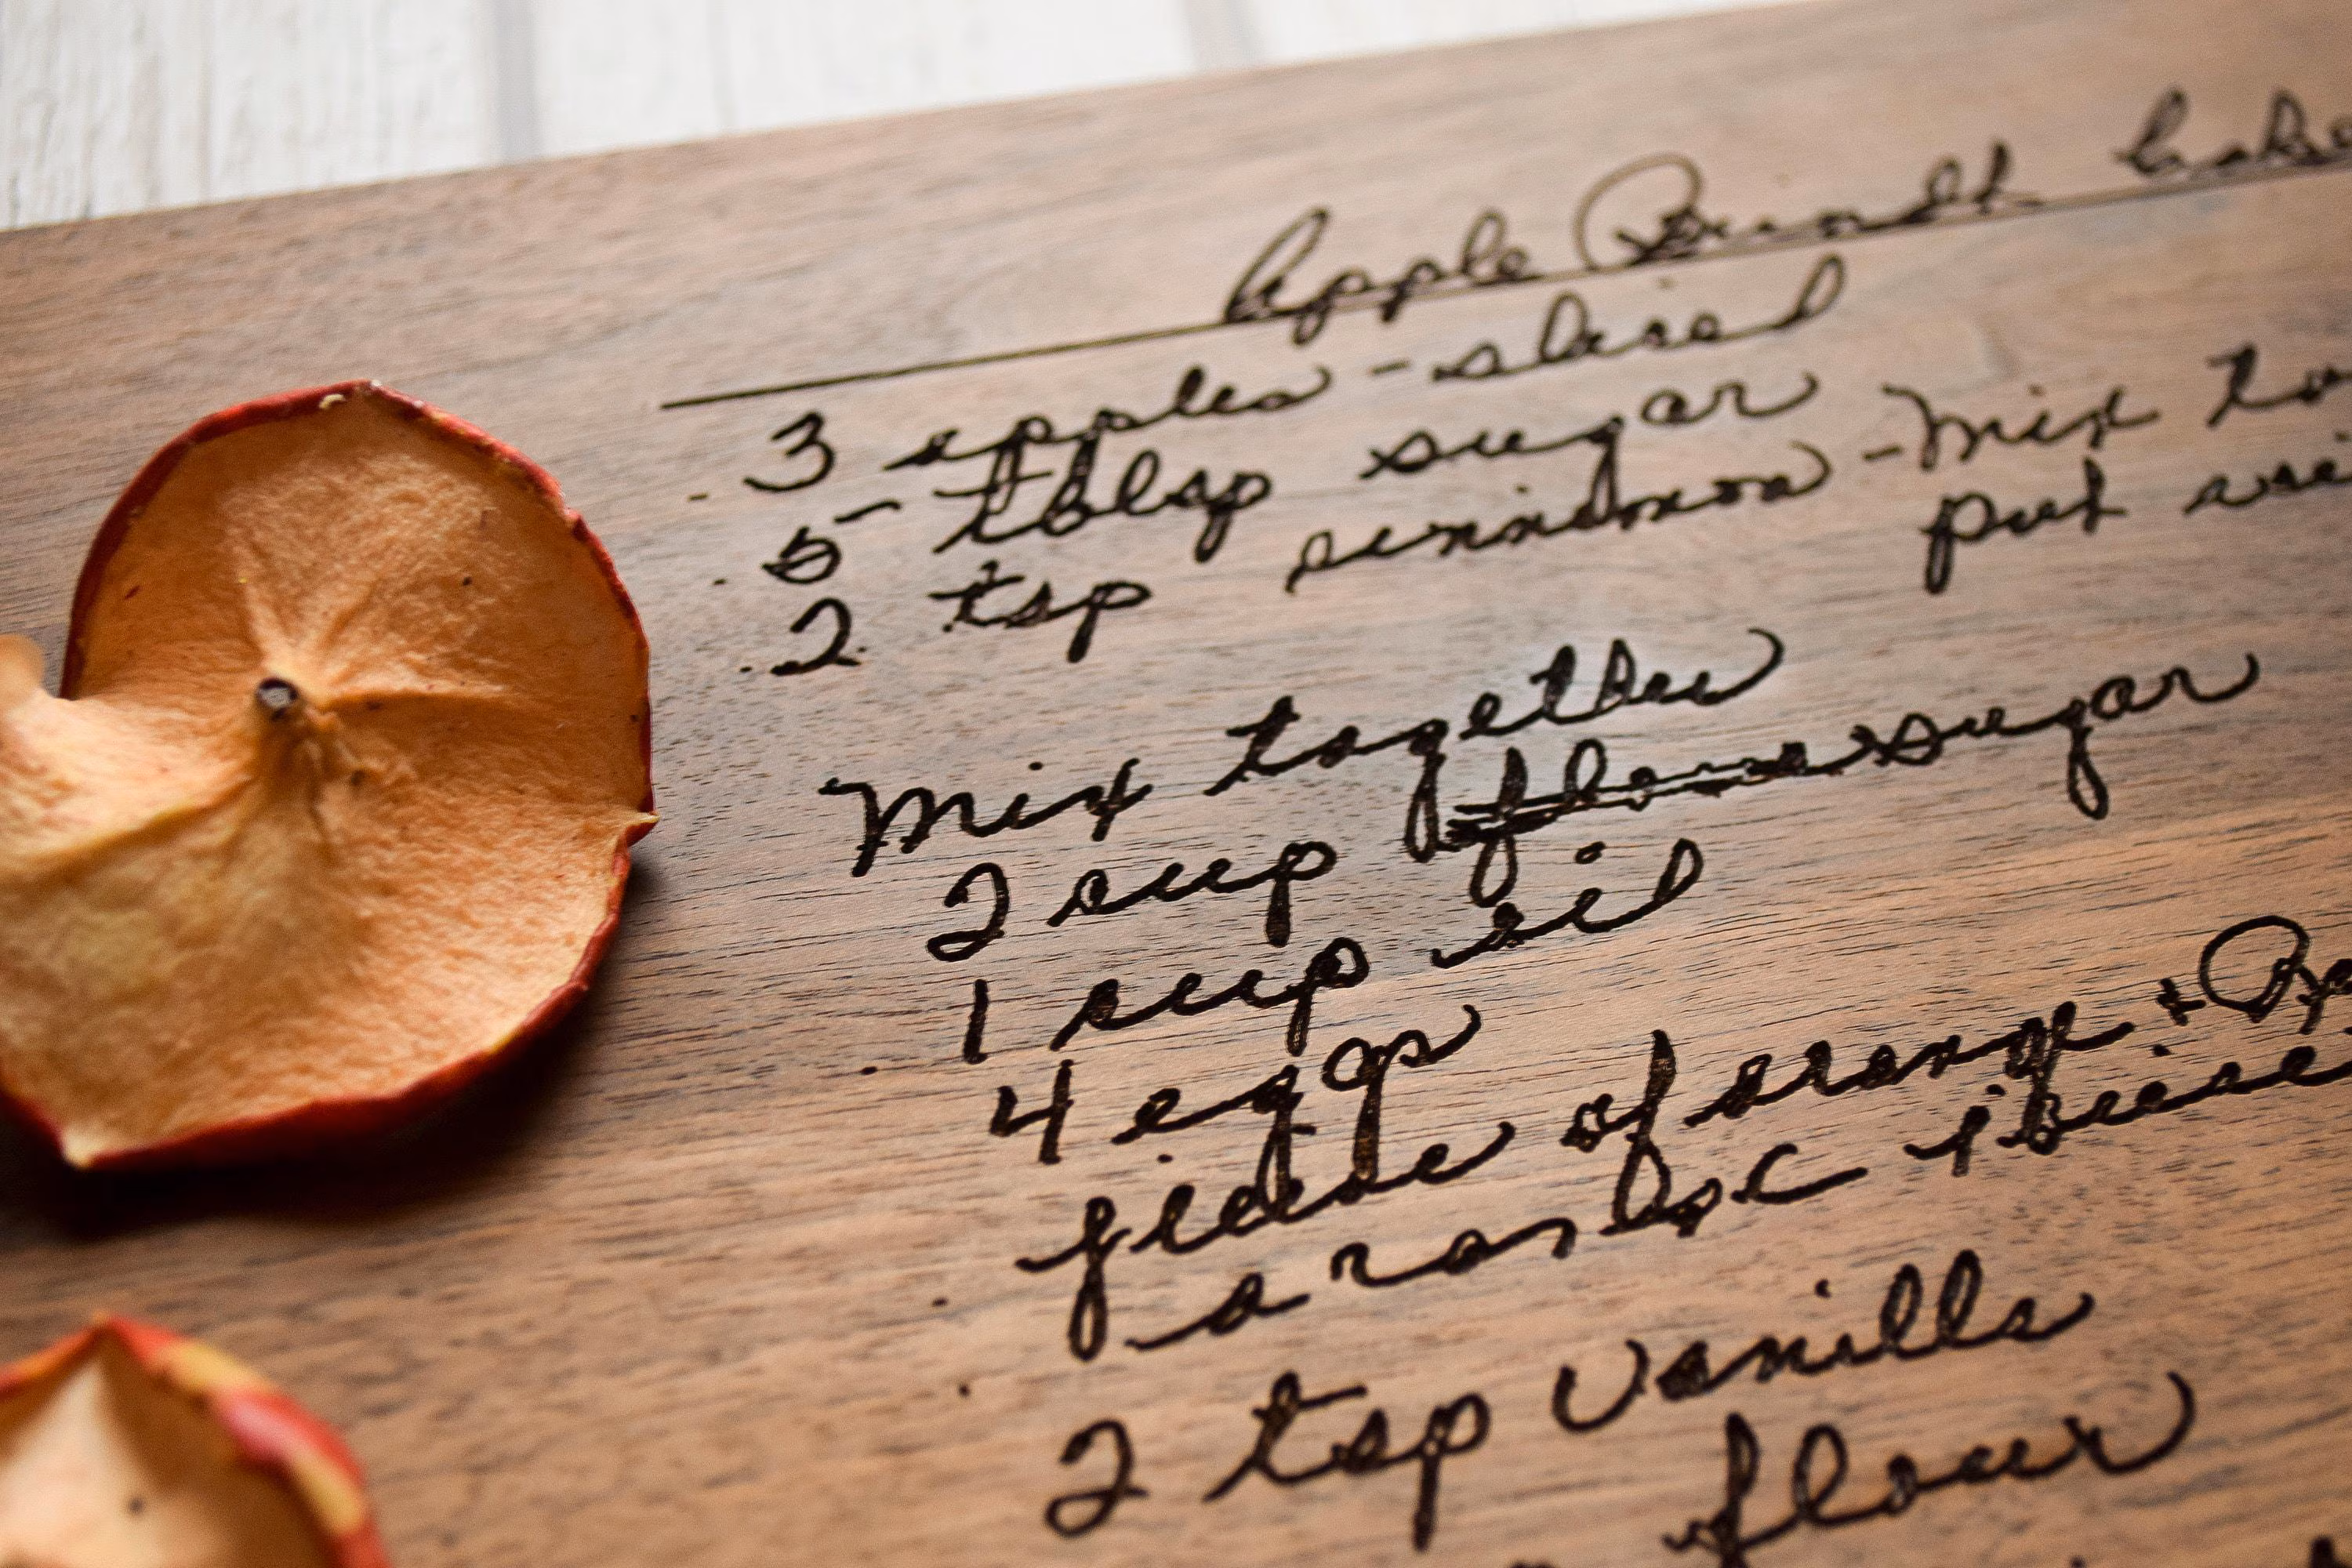 Apple Bundt Cake
3 apples - sliced
5 tblsp sugar
2 tsp cinnamon - Mix to
put
Mix together
2 cup flour sugar
1 cup oil
4 eggs
of orang +
a
2 tsp vanilla
flour